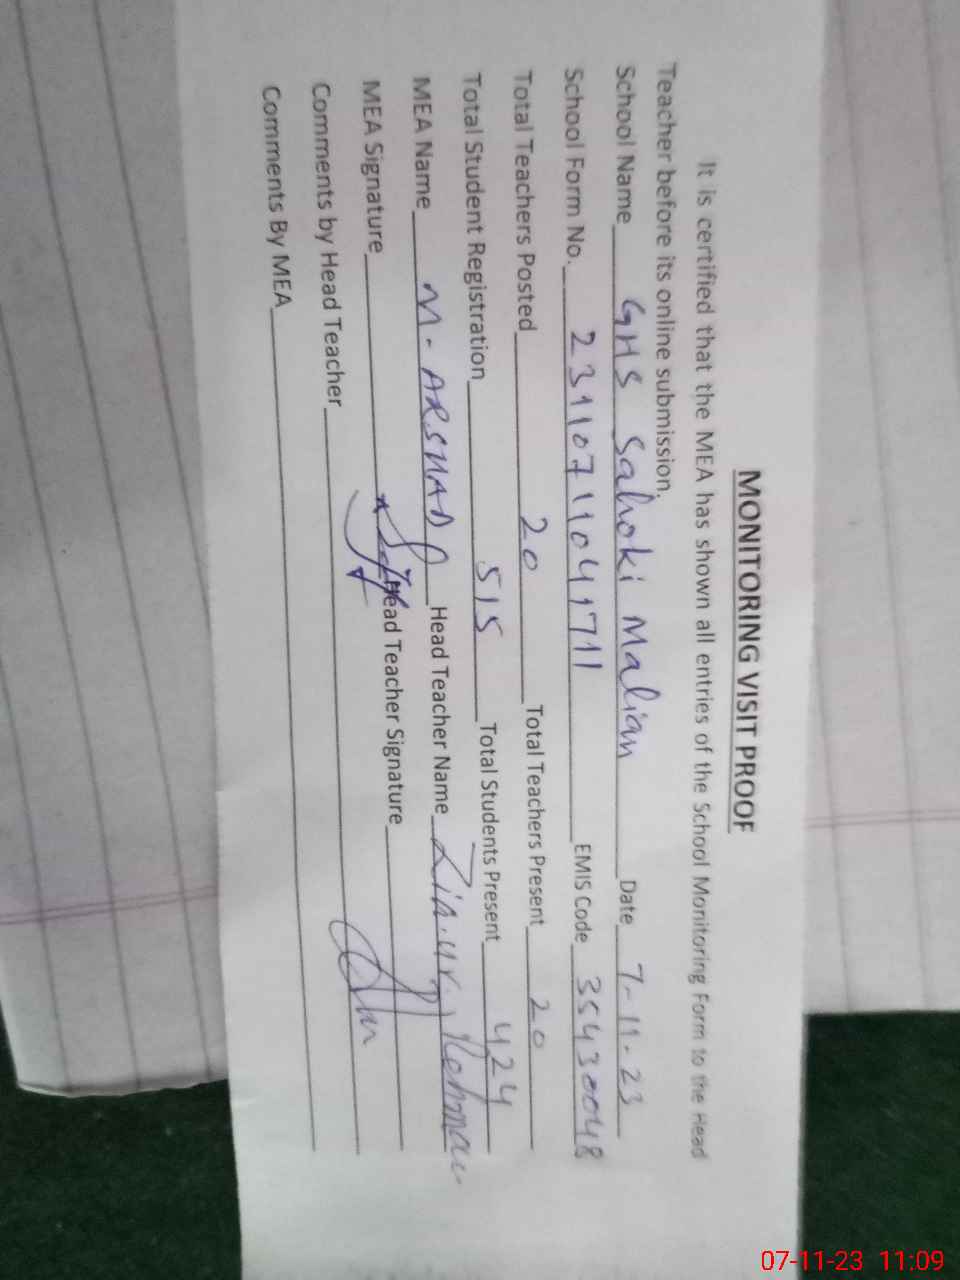 MONITORING VISIT PROOF
It is certified that the MEA has shown all entries of the School Monitoring Form to the Head
Teacher before its online submission.
School Name GHS Sahoki Malian Date 7-11-23
School Form No. 23110711041711 EMIS Code 35430048
Total Teachers Posted 20 Total Teachers Present 20
Total Student Registration 515 Total Students Present 424
MEA Name M. ARSHAD Head Teacher Name Zia.ur.Rehman
MEA Signature Head Teacher Signature
Comments by Head Teacher
Comments By MEA
07-11-23 11:09